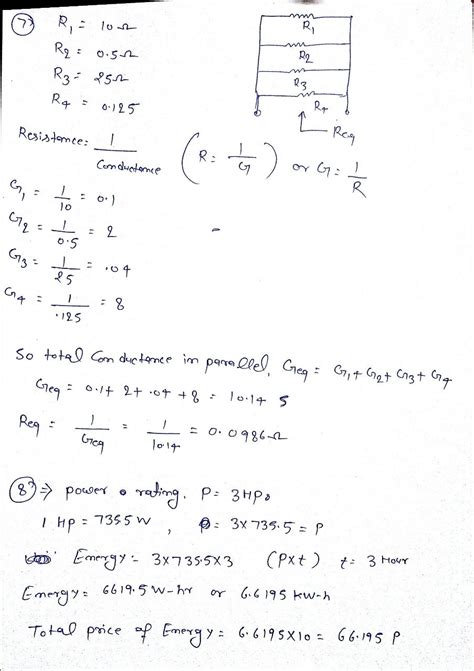 7) R1 = 10Ω
R2 = 0.5Ω
R3 = 25Ω
R4 = 0.125
R1
R2
R3
R4
Req
Resistance = 1/Conductance (R = 1/G) or G = 1/R
G1 = 1/10 = 0.1
G2 = 1/0.5 = 2
G3 = 1/25 = .04
G4 = 1/.125 = 8
So total Conductance in parallel, Geq = G1 + G2 + G3 + G4
Geq = 0.1 + 2 + .04 + 8 = 10.14 S
Req = 1/Geq = 1/10.14 = 0.0986Ω
8) ⇒ power rating. P = 3HP.
1 HP = 735.5 W , P = 3x735.5 = P
Energy = 3x735.5x3 (Pxt) t = 3 Hour
Energy = 6619.5 W-hr or 6.6195 KW-h
Total price of Energy = 6.6195x10 = 66.195 P